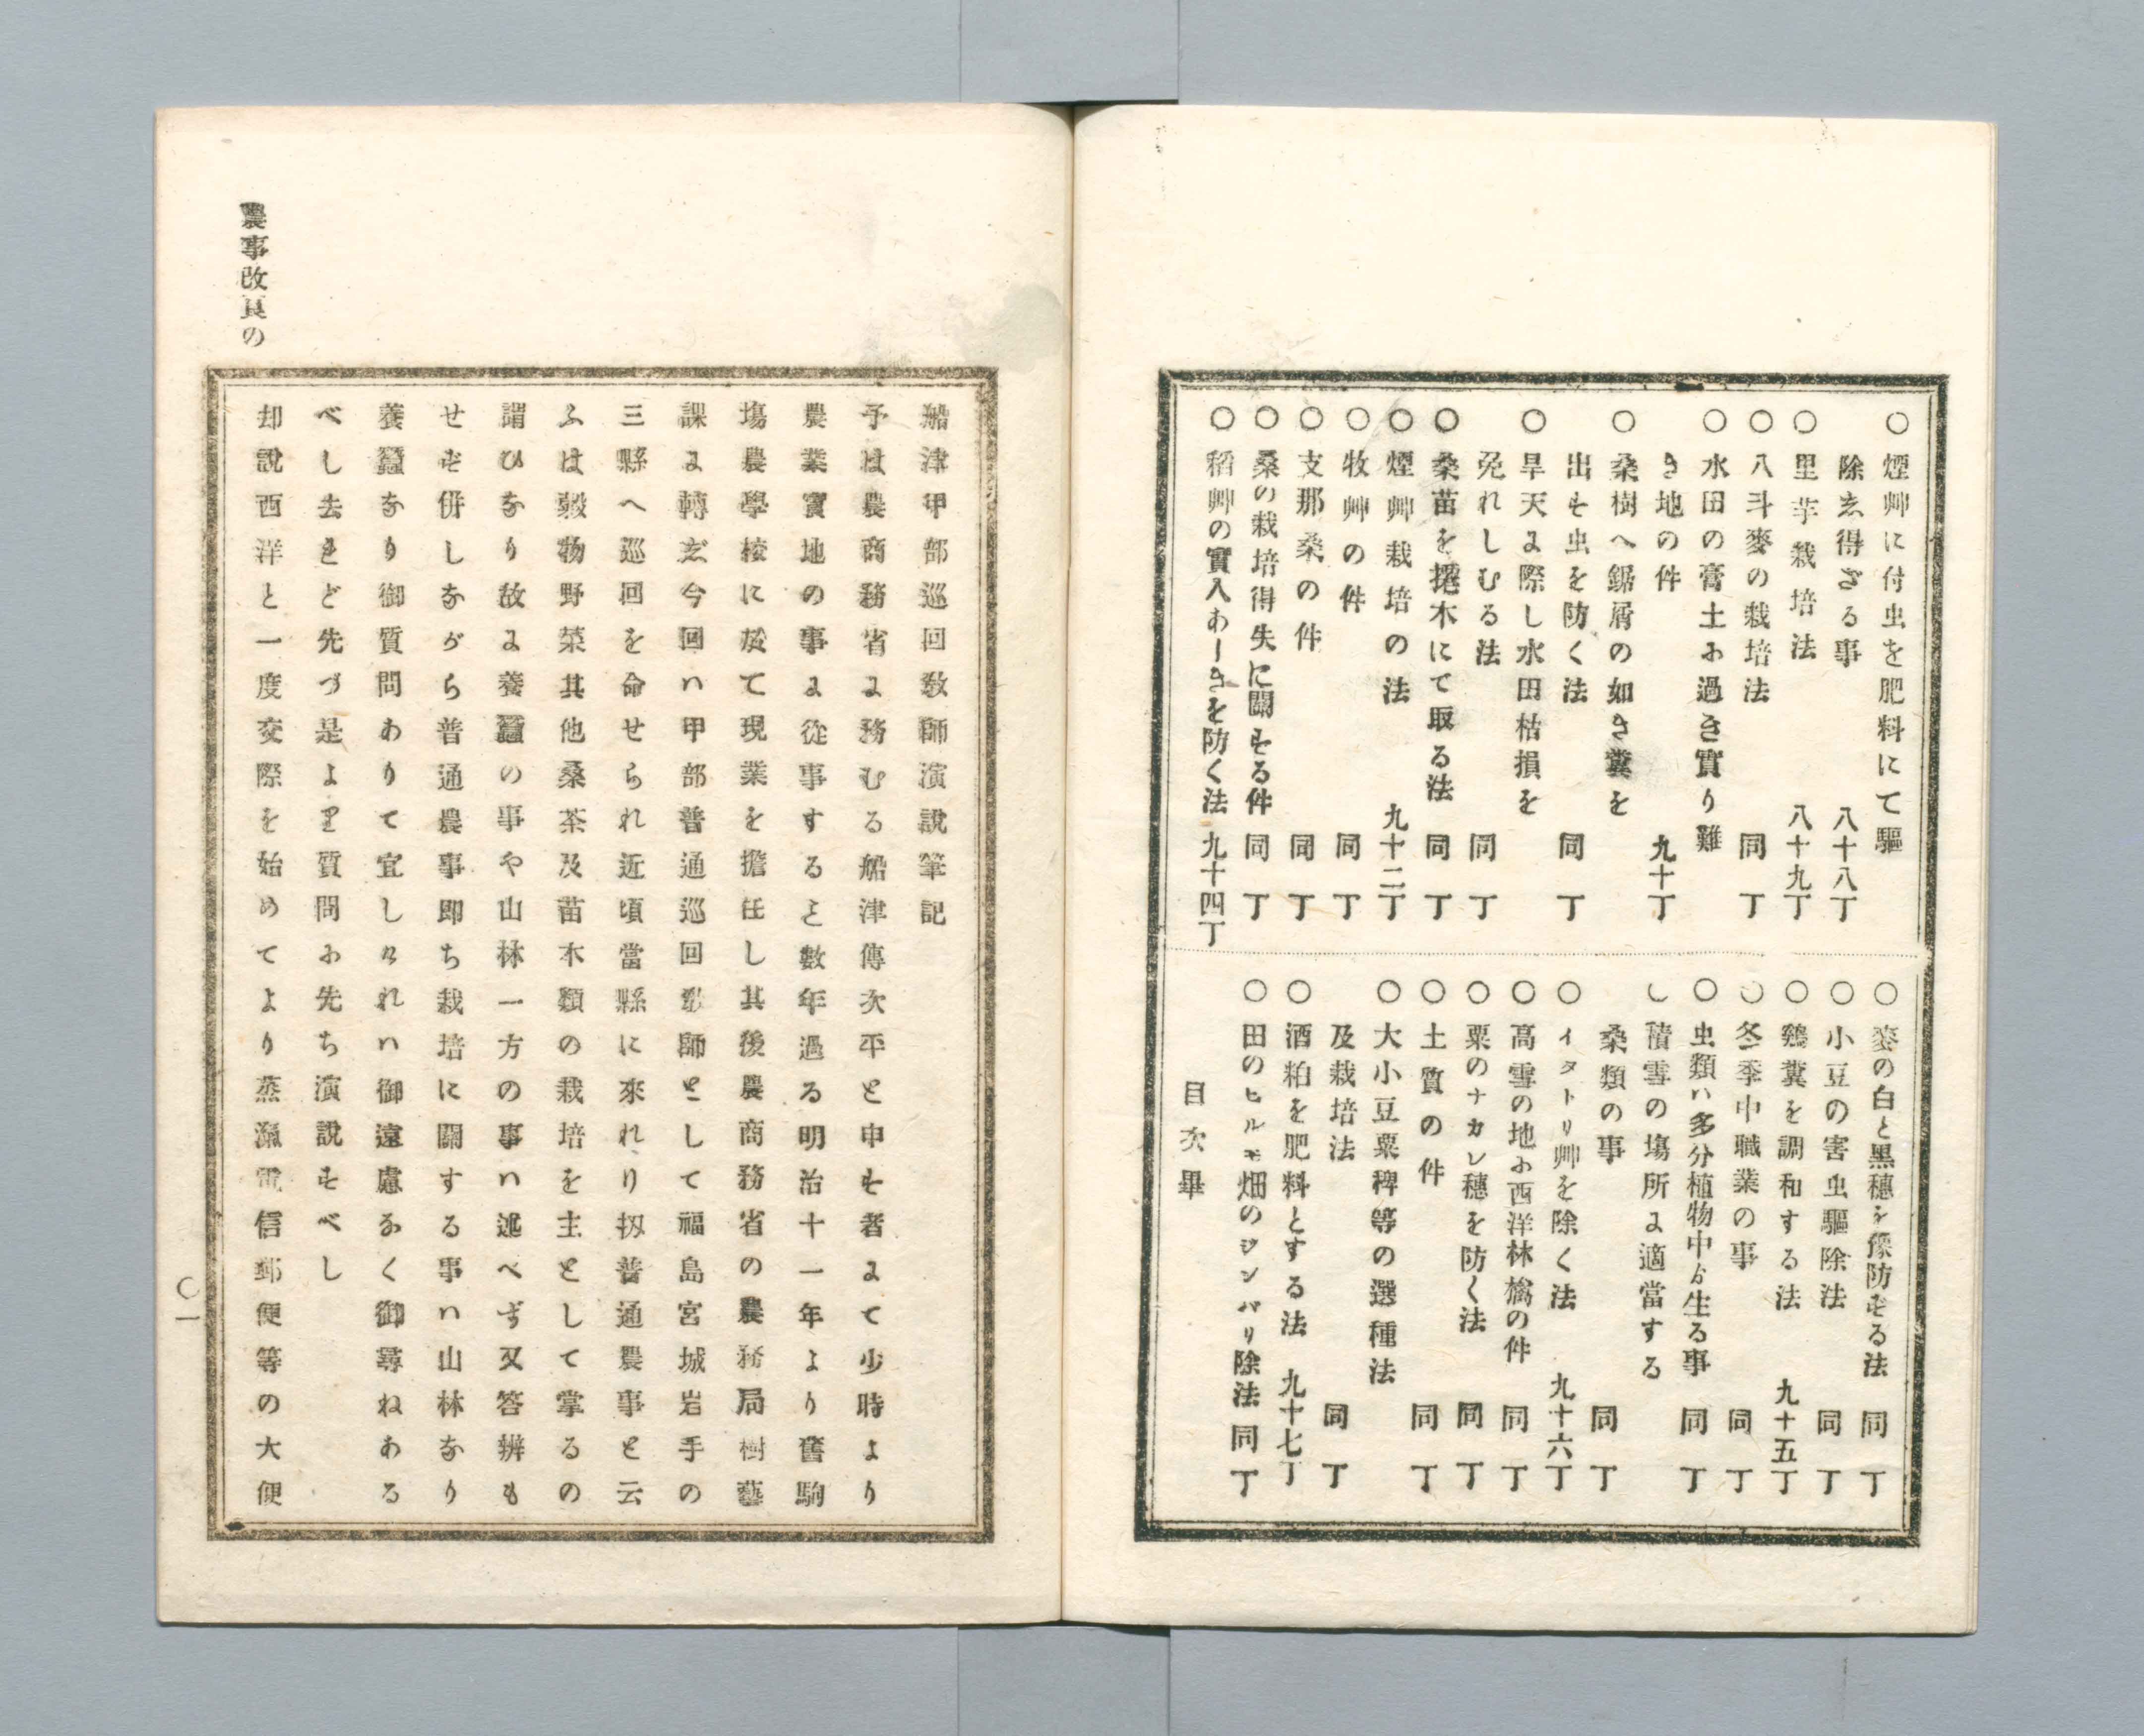 ○煙艸に付虫を肥料にて驅
除ゑ得ざる事 八十八丁
○里芋栽培法 八十九丁
○八斗麥の栽培法 同丁
○水田の膏土お過き實り難
き地の件 九十丁
○桑樹へ鋸屑の如き糞を
出も虫を防く法 同丁
○旱天よ際し水田枯損を
免れしむる法 同丁
○桑苗を撓木にて取る法 同丁
○煙艸栽培の法 九十二丁
○牧艸の件 同丁
○支那桑の件 同丁
○桑の栽培得失に關もる件 同丁
○稻艸の實入あしきを防く法 九十四丁
○麥の白と黒穗を豫防もる法 同丁
○小豆の害虫驅除法 同丁
○鷄糞を調和する法 九十五丁
○冬季中職業の事 同丁
○虫類ハ多分植物中が生る事 同丁
○積雪の塲所よ適當する
桑類の事 同丁
○イタトリ艸を除く法 九十六丁
○高雪の地お西洋林檎の件 同丁
○粟のナカレ穗を防く法 同丁
○土質の件 同丁
○大小豆粟稗等の選種法
及栽培法 同丁
○酒粕を肥料とする法 九十七丁
○田のヒルモ畑のジンバリ除法 同丁
目次畢
船津甲部巡回敎師演說筆記
予は農商務省よ務むる船津傳次平と申も者よて少時より
農業實地の事よ從事すると數年過る明治十一年より舊駒
塲農學校に於て現業を擔任し其後農商務省の農務局樹藝
課よ轉じ今回ハ甲部普通巡回敎師として福島宮城岩手の
三縣へ巡回を命せられ近頃當縣に來れり扨普通農事と云
ふは穀物野菜其他桑茶及苗木類の栽培を主として掌るの
謂ひなり故よ養蠶の事や山林一方の事ハ述べず又答辨も
せぞ併しながら普通農事即ち栽培に關する事ハ山林なり
養蠶なり御質問ありて宜しけれハ御遠慮なく御尋ねある
べし去れど先づ是より質問お先ち演說もべし
却說西洋と一度交際を始めてより蒸滊電信郵便等の大便
農事改良の
○一